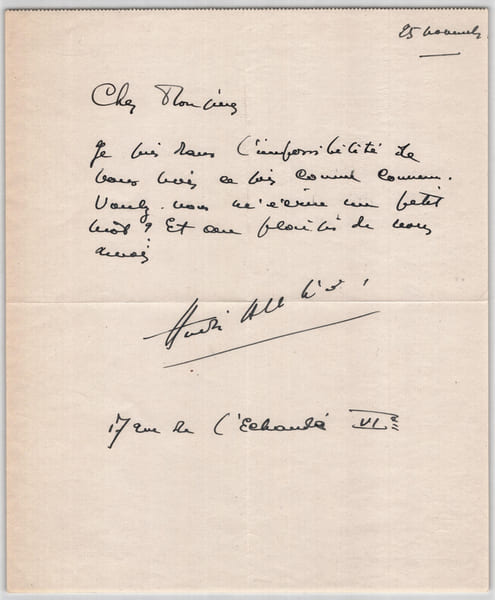 25 novembre
Cher Monsieur
Je suis dans l'impossibilité de
vous voir ce soir comme convenu.
Voulez-vous m'écrire un petit
mot ? Et au plaisir de vous
avoir
17 rue de l'Echaudé VIe